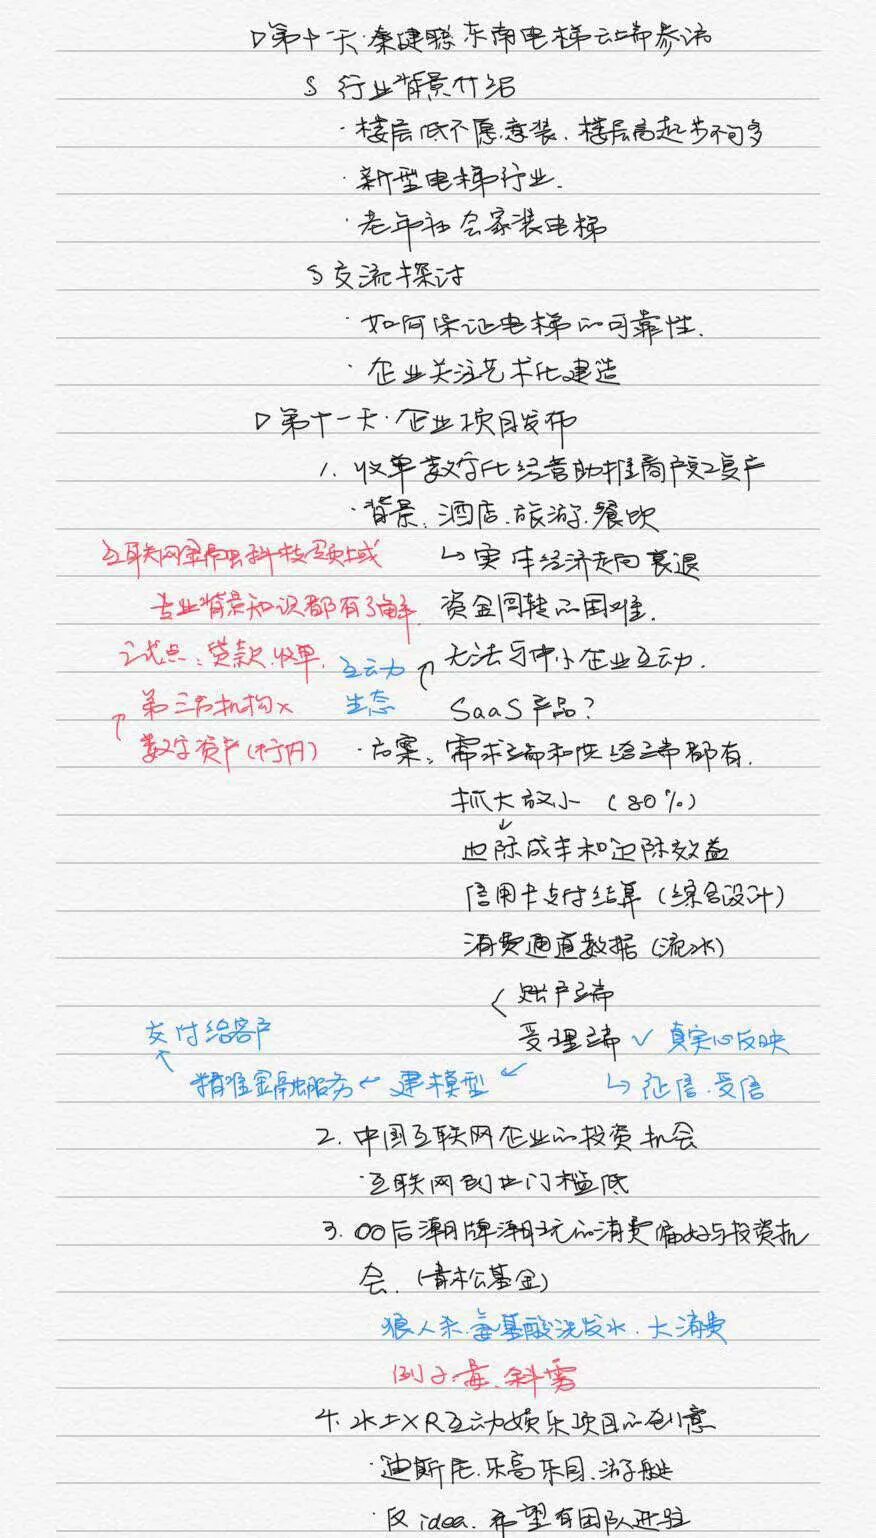 ▷第十天·秦健聪东南电梯云端参访
§ 行业背景介绍
·楼层低不愿意装、楼层高起步不可多
·新型电梯行业.
·老年社会家装电梯
§ 交流探讨
·如何保证电梯的可靠性.
·企业关注艺术化建造
▷第十一天·企业项目发布
1. 收单数字化经营助推商户复工复产
·背景：酒店.旅游.餐饮
互联网金融科技领域
↳实体经济走向衰退
专业背景知识都有了解.
资金回转的困难.
试点：贷款.收单.
互动力
↗无法与中小企业互动.
第三方机构×
生态
SaaS产品？
↑数字资产(行内)
·方案：需求端和供给端都有.
抓大放小 (80%)
↓
边际成本和边际效益
信用卡支付结算 (综合设计)
消费通道数据 (流水)
< 账户端
交付给客户
受理端 ✓ 真实的反映
↖精准金融服务 ← 建模型 ↙
↳ 征信.受信
2. 中国互联网企业的投资机会
·互联网创业门槛低
3. 00后潮牌潮玩的消费偏好与投资机
会. (青松基金)
狼人杀.氨基酸洗发水.大消费
例子:毒.
4. 水上XR互动娱乐项目的创意
·迪斯尼.乐高乐园.游艇
·仅idea.希望有团队进驻